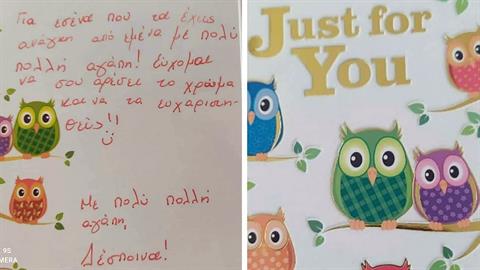 Για εσένα που τα έχεις
ανάγκη από εμένα με πολύ
πολλή αγάπη! Εύχομαι
να σου αρέσει το χρώμα
και να τα ευχαριστη-
θείς!!
Με πολύ πολλή
αγάπη,
Δέσποινα!
Just for
You
95
MERA